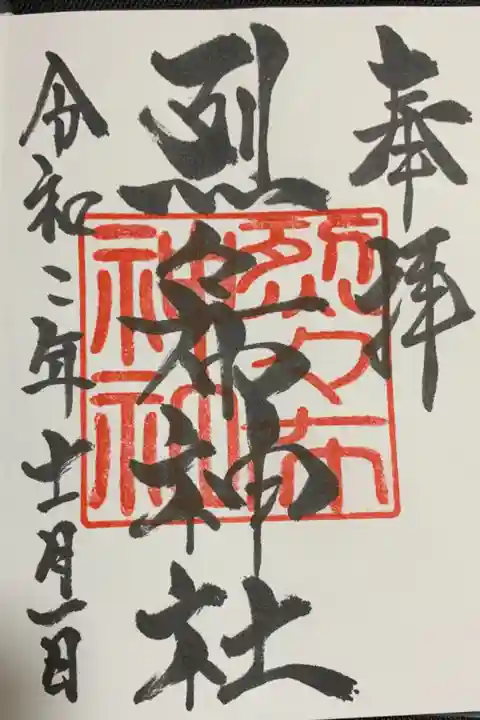 奉拝
烈々布神社
令和二年十一月一日
烈々布
神社